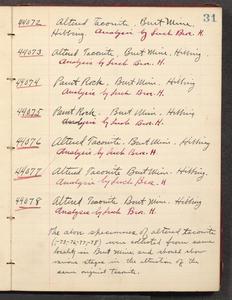 31
44072 Altered Taconite. Burt Mine.
Hibbing. Analysis by Lerch Bros. H.
44073 Altered Taconite, Burt Mine, Hibbing
Analysis by Lerch Bros. H.
44074 Paint Rock. Burt Mine. Hibbing
Analysis by Lerch Bros. H.
44075 Paint Rock. Burt Mine. Hibbing
Analysis by Lerch Bros. H.
44076 Altered Taconite. Burt Mine. Hibbing
Analysis by Lerch Bros. H.
44077 Altered Taconite Burt Mine. Hibbing
Analysis by Lerch Bros. H.
44078 Altered Taconite Burt Mine. Hibbing
Analyses by Lerch Bros. H.
The above specimens of altered taconite
(-73-76-77-78) were collected from same
locality in Burt Mine and should show
various stages in the alteration of the
same original taconite.